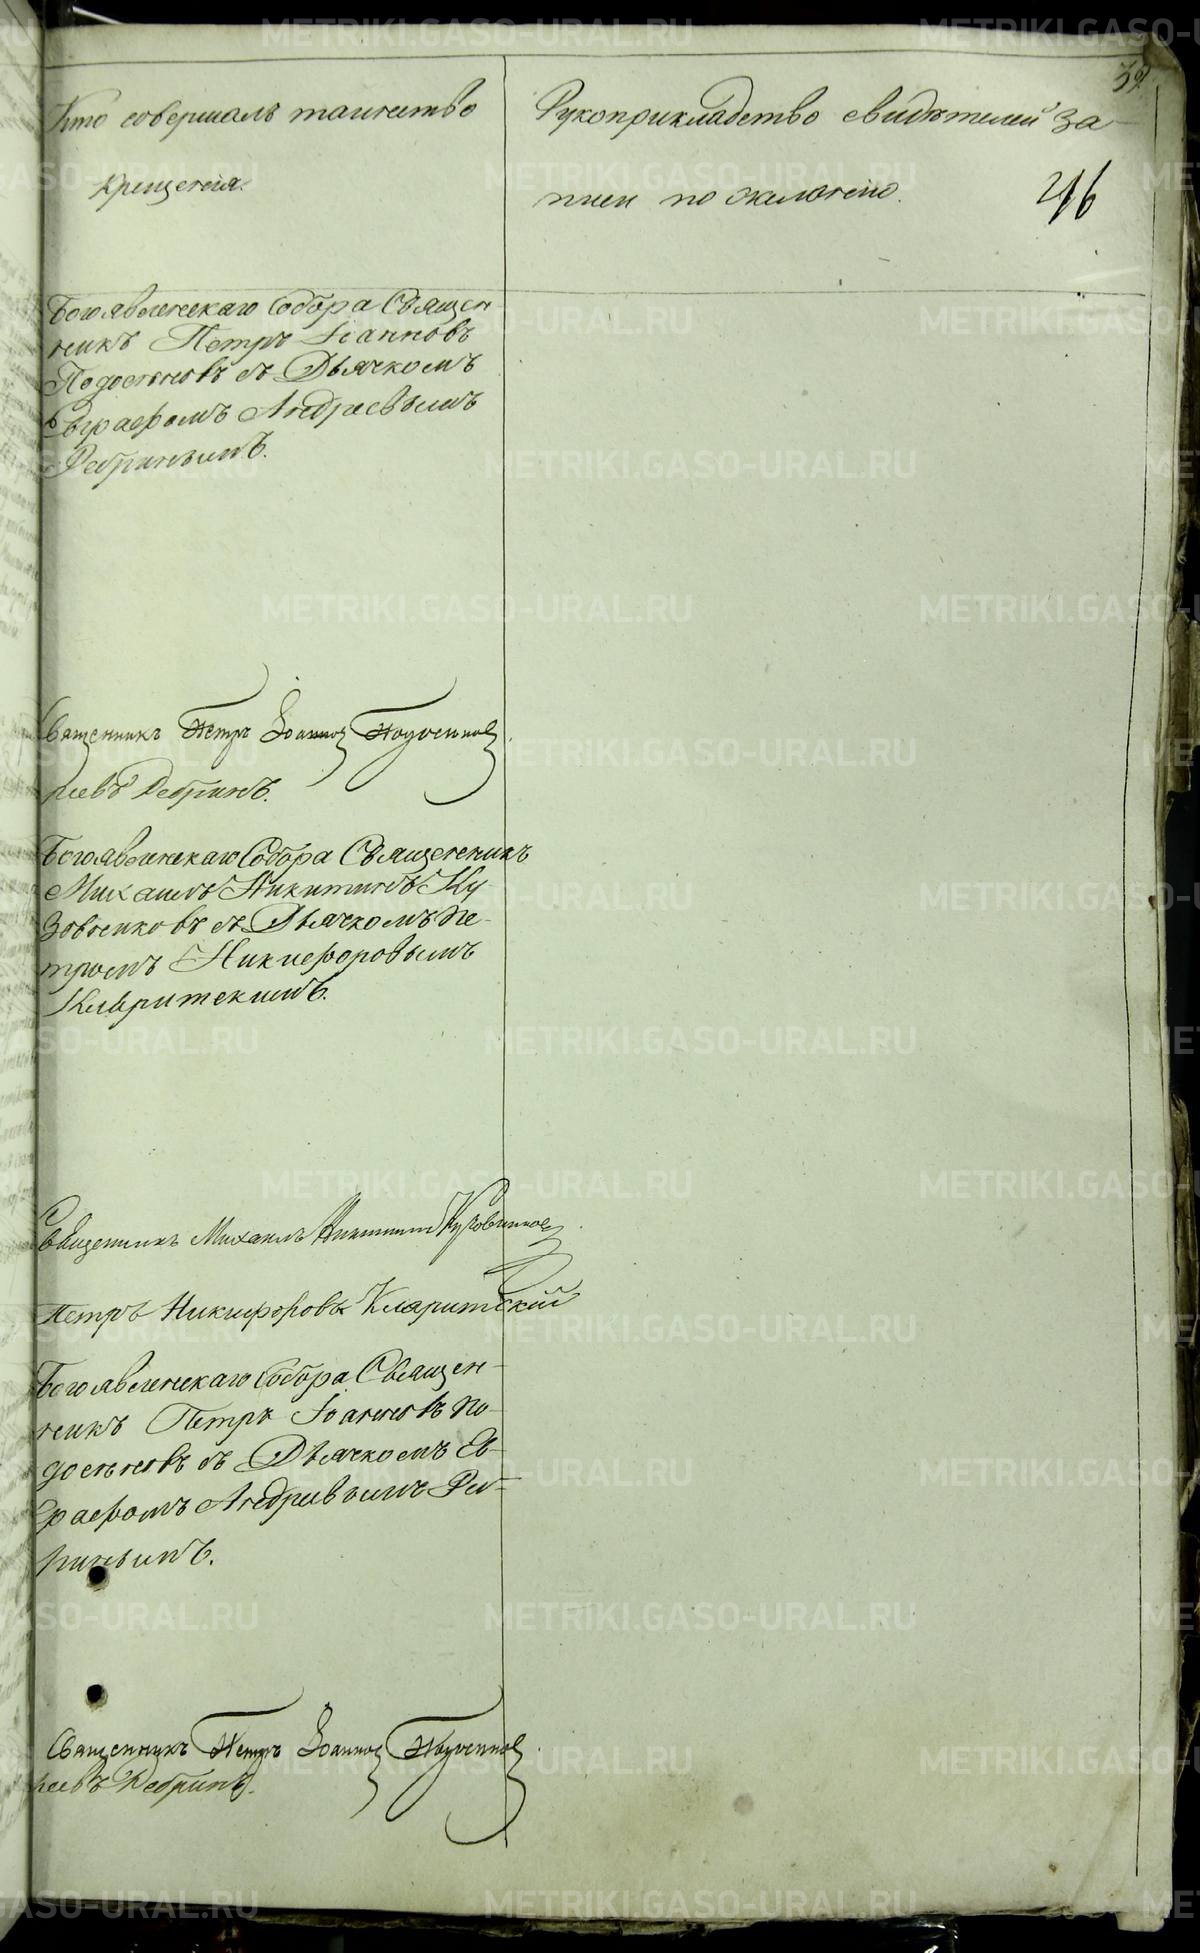 39
Кто совершалъ таинство
крещенія.
Рукоприкладство свидѣтелей за-
писи по желанію.
Богоявленскаго Собора Священ-
никъ Петръ Іоанновъ
Подосеновъ съ Дьячкомъ
Евграфомъ Андреевымъ
Ребринымъ.
Священникъ Петръ Іоанновъ Подосеновъ
реевъ Ребринъ.
Богоявленскаго Собора Священникъ
Михаилъ Никитинъ Ку-
зовниковъ съ Дьячкомъ Пе-
тромъ Никифоровымъ
Кларитскимъ.
Священникъ Михаилъ Никитинъ Кузовниковъ
Петръ Никифоровъ Кларитский
Богоявленскаго Собора Священ-
никъ Петръ Іоанновъ По-
досеновъ съ Дьячкомъ Ев-
графомъ Андреевымъ Реб-
ринымъ.
Священникъ Петръ Іоанновъ Подосеновъ
реевъ Ребринъ.
METRIKI.GASO-URAL.RU